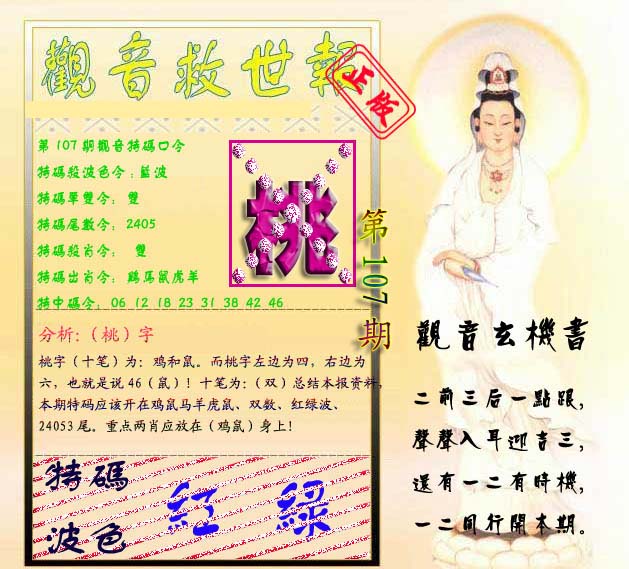 觀音救世報
正版
第107期觀音特碼口令
特碼殺波色令:藍波
特碼單雙令: 雙
特碼尾數令: 2405
特碼殺肖令: 雙
特碼出肖令: 鷄馬鼠虎羊
特中碼令: 06 12 18 23 31 38 42 46
桃
第107期
分析:（桃）字
桃字（十笔）为：鸡和鼠。而桃字左边为四，右边为
六，也就是说46（鼠）！十笔为：（双）总结本报资料，
本期特码应该开在鸡鼠马羊虎鼠、双数、红绿波、
24053尾。重点两肖应放在（鸡鼠）身上！
特碼
波色
紅 綠
觀音玄機書
二前三后一點跟,
聲聲入耳迎吉三,
還有一二有時機,
一二同行開本期。